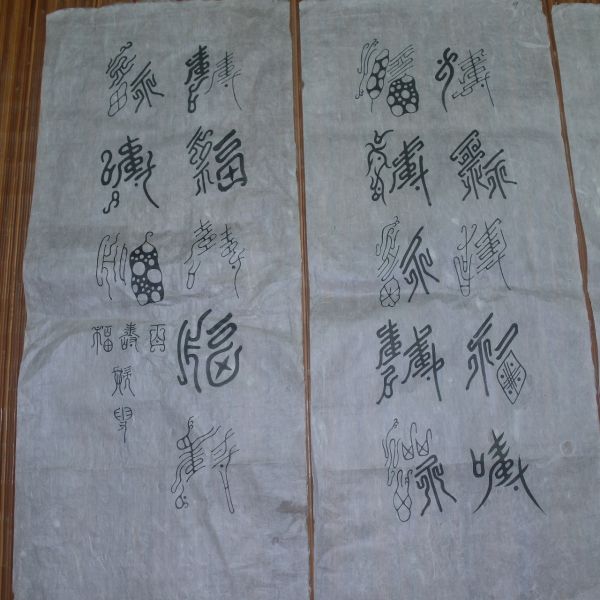 壽福壽福壽
福壽福壽福
壽福壽福壽
福壽福
百
壽
福